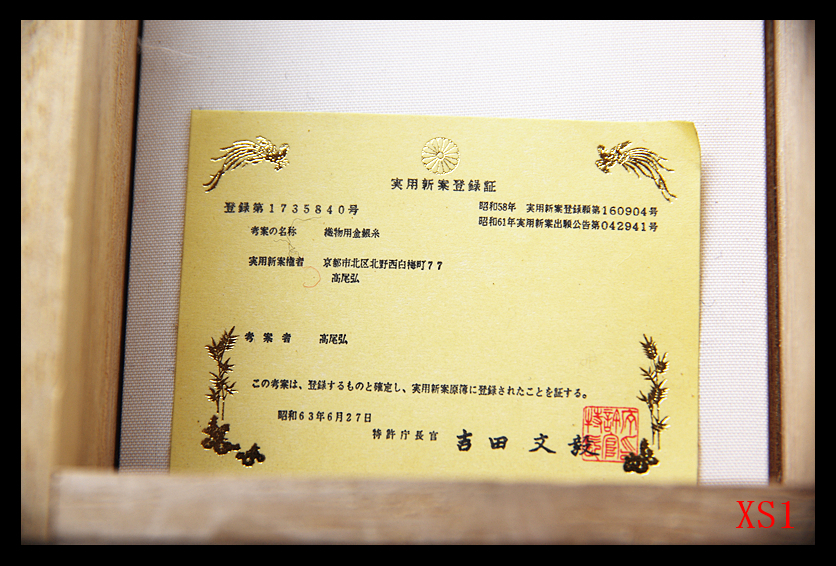 実用新案登録証
登録第1735840号
昭和58年 実用新案登録願第160904号
昭和61年実用新案出願公告第042941号
考案の名称 織物用金銀糸
実用新案権者 京都市北区北野西白梅町77
高尾弘
考案者 高尾弘
この考案は、登録するものと確定し、実用新案原簿に登録されたことを証する。
昭和63年6月27日
特許庁長官 吉田文毅
XS1